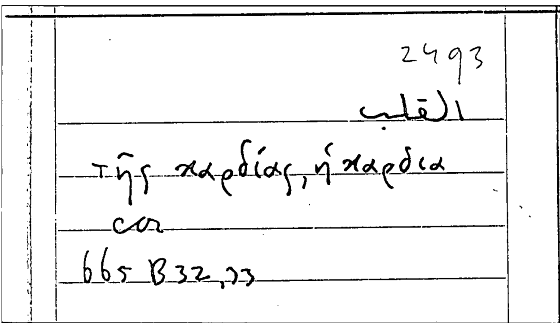 2493
القلب
τῆς καρδίας, ἡ καρδια
cor
665 B32,33